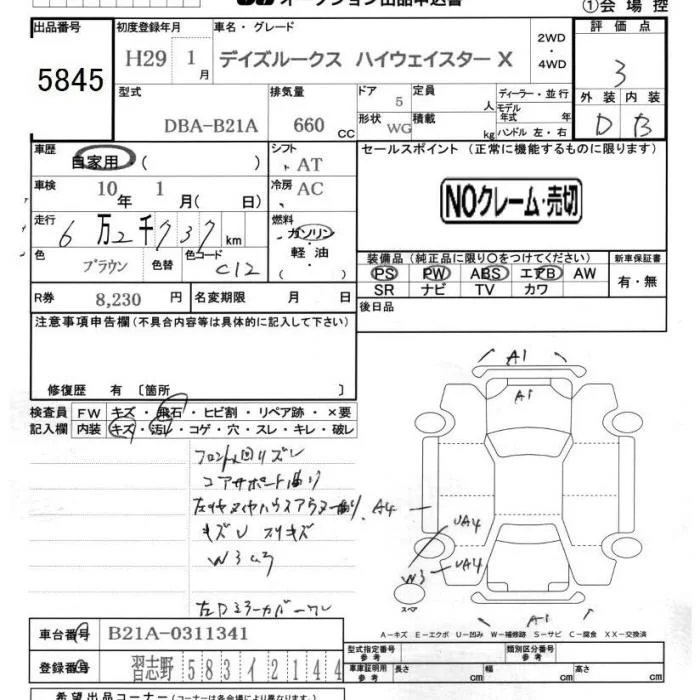 オークション出品申込書
①会場控
出品番号 初度登録年月 車名・グレード 評価点
5845 H29 1月 デイズルークス ハイウェイスター X 2WD・4WD 3
型式 排気量 ドア 定員 ディーラー・並行 外装 内装
DBA-B21A 660 CC 5 人 モデル年式 年 D B
形状 WG 積載 kg ハンドル 左・右
車歴 シフト セールスポイント (正常に機能するものに限ります)
自家用 ( ) AT
車検 10年 1月 ( 日) 冷房 AC NOクレーム・売切
走行 6万2千737km 燃料 ガソリン 軽油 ( )
色 ブラウン 色替 色コード C12
装備品 (純正品に限り○をつけてください) 新車保証書
PS PW ABS エアB AW 有・無
SR ナビ TV カワ
R券 8,230 円 名変期限 月 日 後日品
注意事項申告欄 (不具合内容等は具体的に記入して下さい)
修復歴 有 [箇所 ]
検査員 FW キズ・飛石・ヒビ割・リペア跡・×要
記入欄 内装 キズ・汚レ・コゲ・穴・スレ・キレ・破レ
A1
A1
コアサポート曲り
A4
UA4
キズU スリキズ
W3 UA4
W3
スペア
A1
A-キズ E-エクボ U-凹み W-補修跡 S-サビ C-腐食 XX-交換済
車台番号 B21A-0311341
型式指定番号 参考 類別区分番号 参考
登録番号 習志野 583 イ 2144
車庫証明用 参考 長さ cm 幅 cm 高さ cm
希望出品コーナー (コーナーは各会場により異なります)